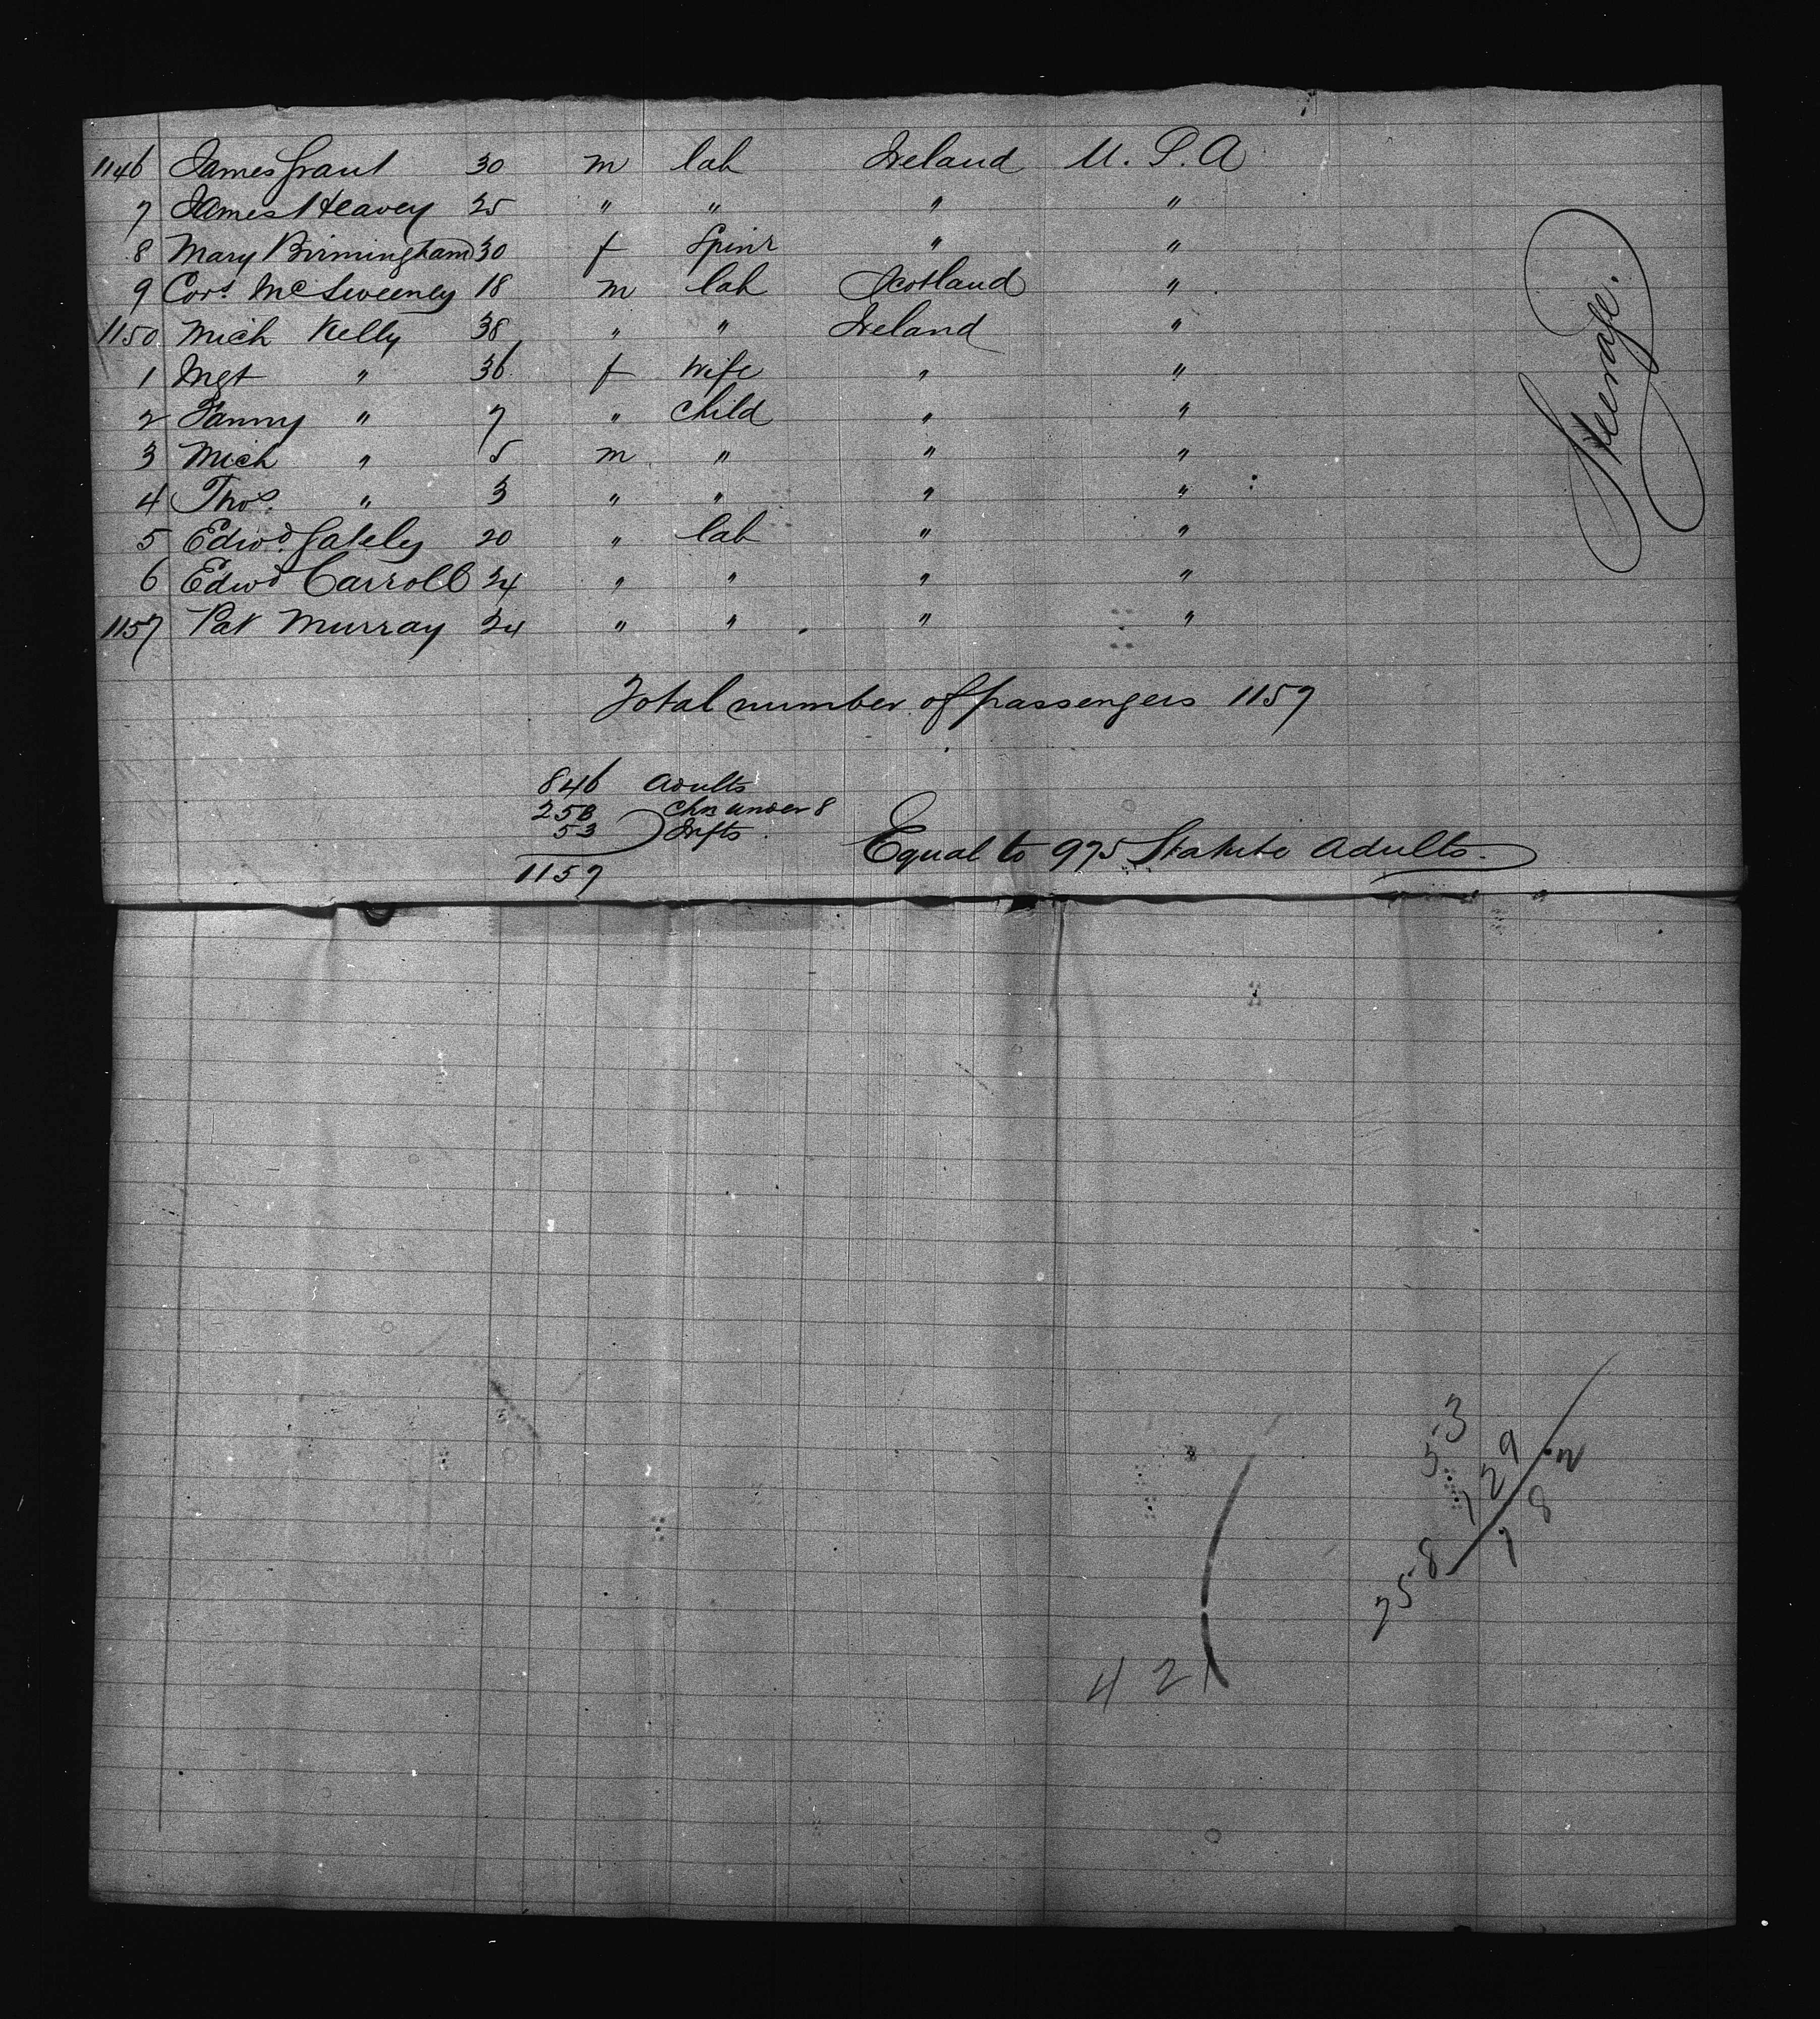 1146 James Grant 30 m lab Ireland U.S.A
7 James Heavey 25 " " " "
8 Mary Birmingham 30 f Spinr " "
9 Cors. McSweeney 18 m lab Scotland "
1150 Mich Kelly 38 " " Ireland "
1 Mgt " 36 f Wife " "
2 Fanny " 7 " Child " "
3 Mich " 5 m " " "
4 Thos. " 3 " " " "
5 Edwd. Gately 20 " lab " "
6 Edwd Carroll 24 " " " "
1157 Pat Murray 24 " " " "
Steerage.
Total number of passengers 1157
846 Adults
258 Chn under 8
53 Infts
1157
Equal to 975 Statute Adults.
53
129
258
421